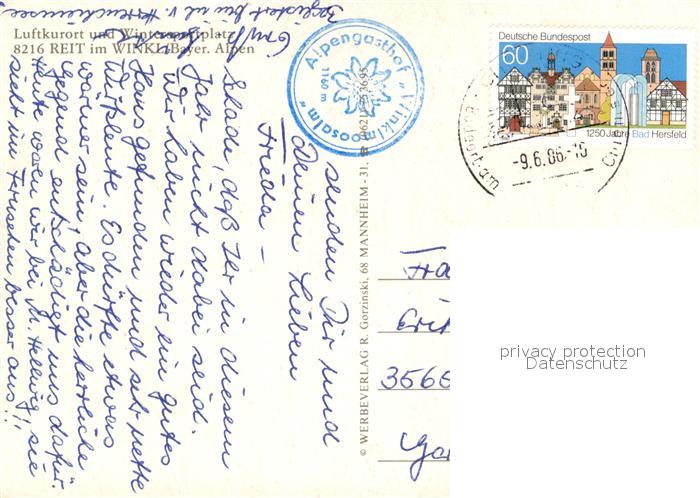 Luftkurort und Wintersportplatz
8216 REIT im WINKL/Bayer. Alpen
Alpengasthof „Winklmoosalm"
1160 m
Deutsche Bundespost
60
1250 Jahre Bad Hersfeld
-9.6.86-10
© WERBEVERLAG R. Gorzinski, 68 MANNHEIM-31
senden Dir und
Deinen Lieben
Frieda -
Schade, daß Ihr in diesem
Jahr nicht dabei seid.
Wir haben wieder ein gutes
Haus gefunden und sehr nette
Wirtsleute. Es dürfte etwas
wärmer sein, aber die herrliche
Gegend entschädigt uns dafür.
Heute waren wir bei M. Hellwig, sie
sieht im Fernsehen besser aus!!
3566
privacy protection
Datenschutz